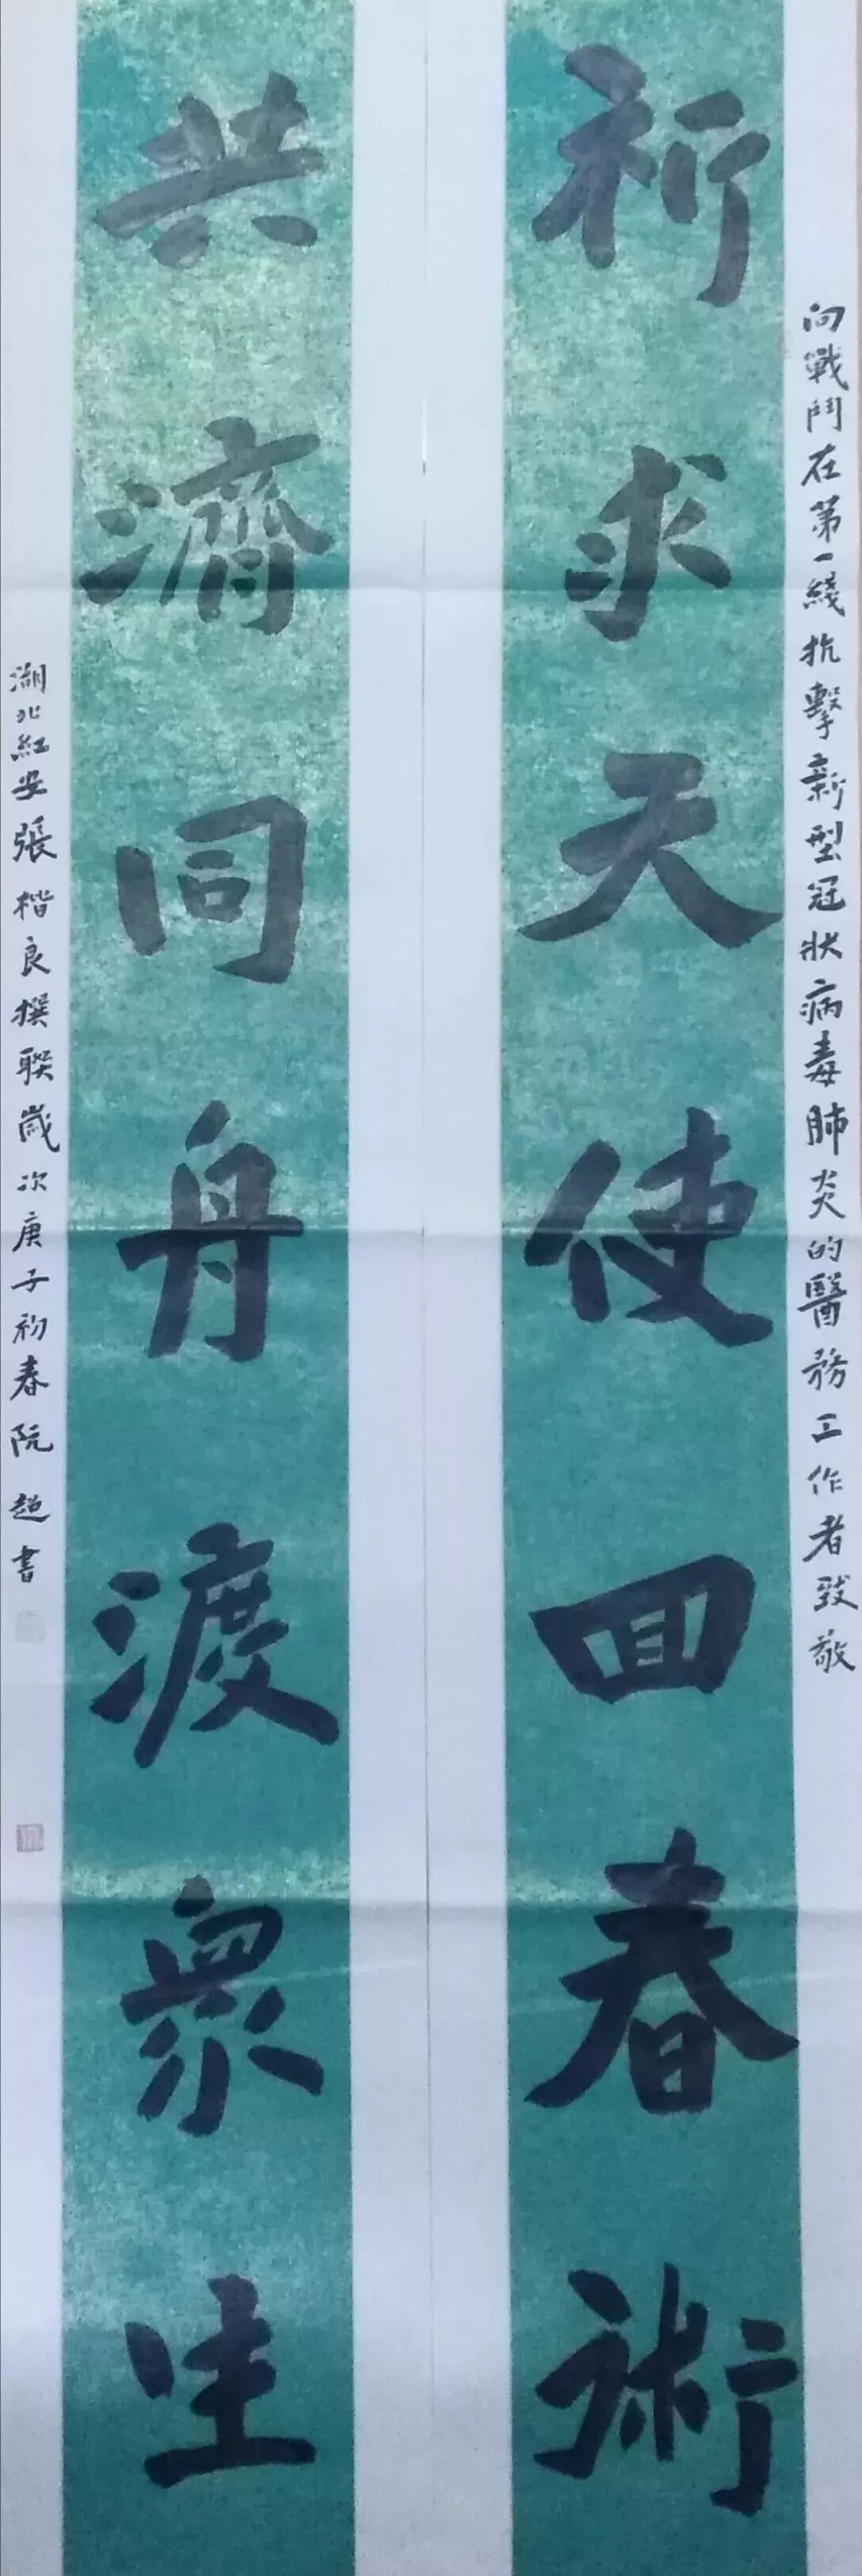 向戰鬥在第一綫抗擊新型冠狀病毒肺炎的醫務工作者致敬
祈求天使回春術
共濟同舟渡衆生
湖北紅安張楷良撰聯歲次庚子初春阮超書